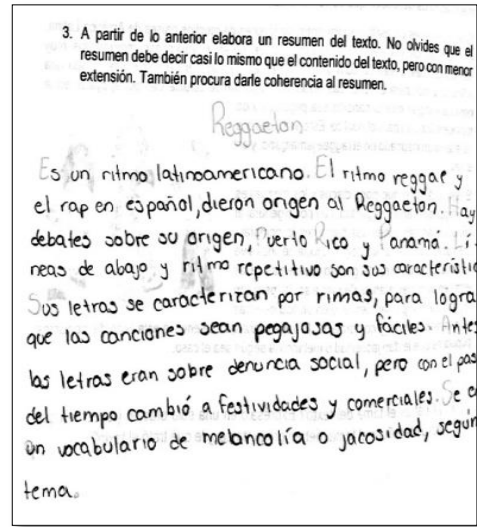 3. A partir de lo anterior elabora un resumen del texto. No olvides que el
resumen debe decir casi lo mismo que el contenido del texto, pero con menor
extensión. También procura darle coherencia al resumen.
Reggaeton
Es un ritmo latinoamericano. El ritmo reggae y
el rap en español, dieron origen al Reggaeton. Hay
debates sobre su origen, Puerto Rico y Panamá. Lí
neas de abajo y ritmo repetitivo son sus característic
Sus letras se caracterizan por rimas, para logra
que las canciones sean pegajosas y fáciles. Antes
las letras eran sobre denuncia social, pero con el pas
del tiempo cambió a festividades y comerciales. Se
un vocabulario de melancolía o jacosidad, según
tema.